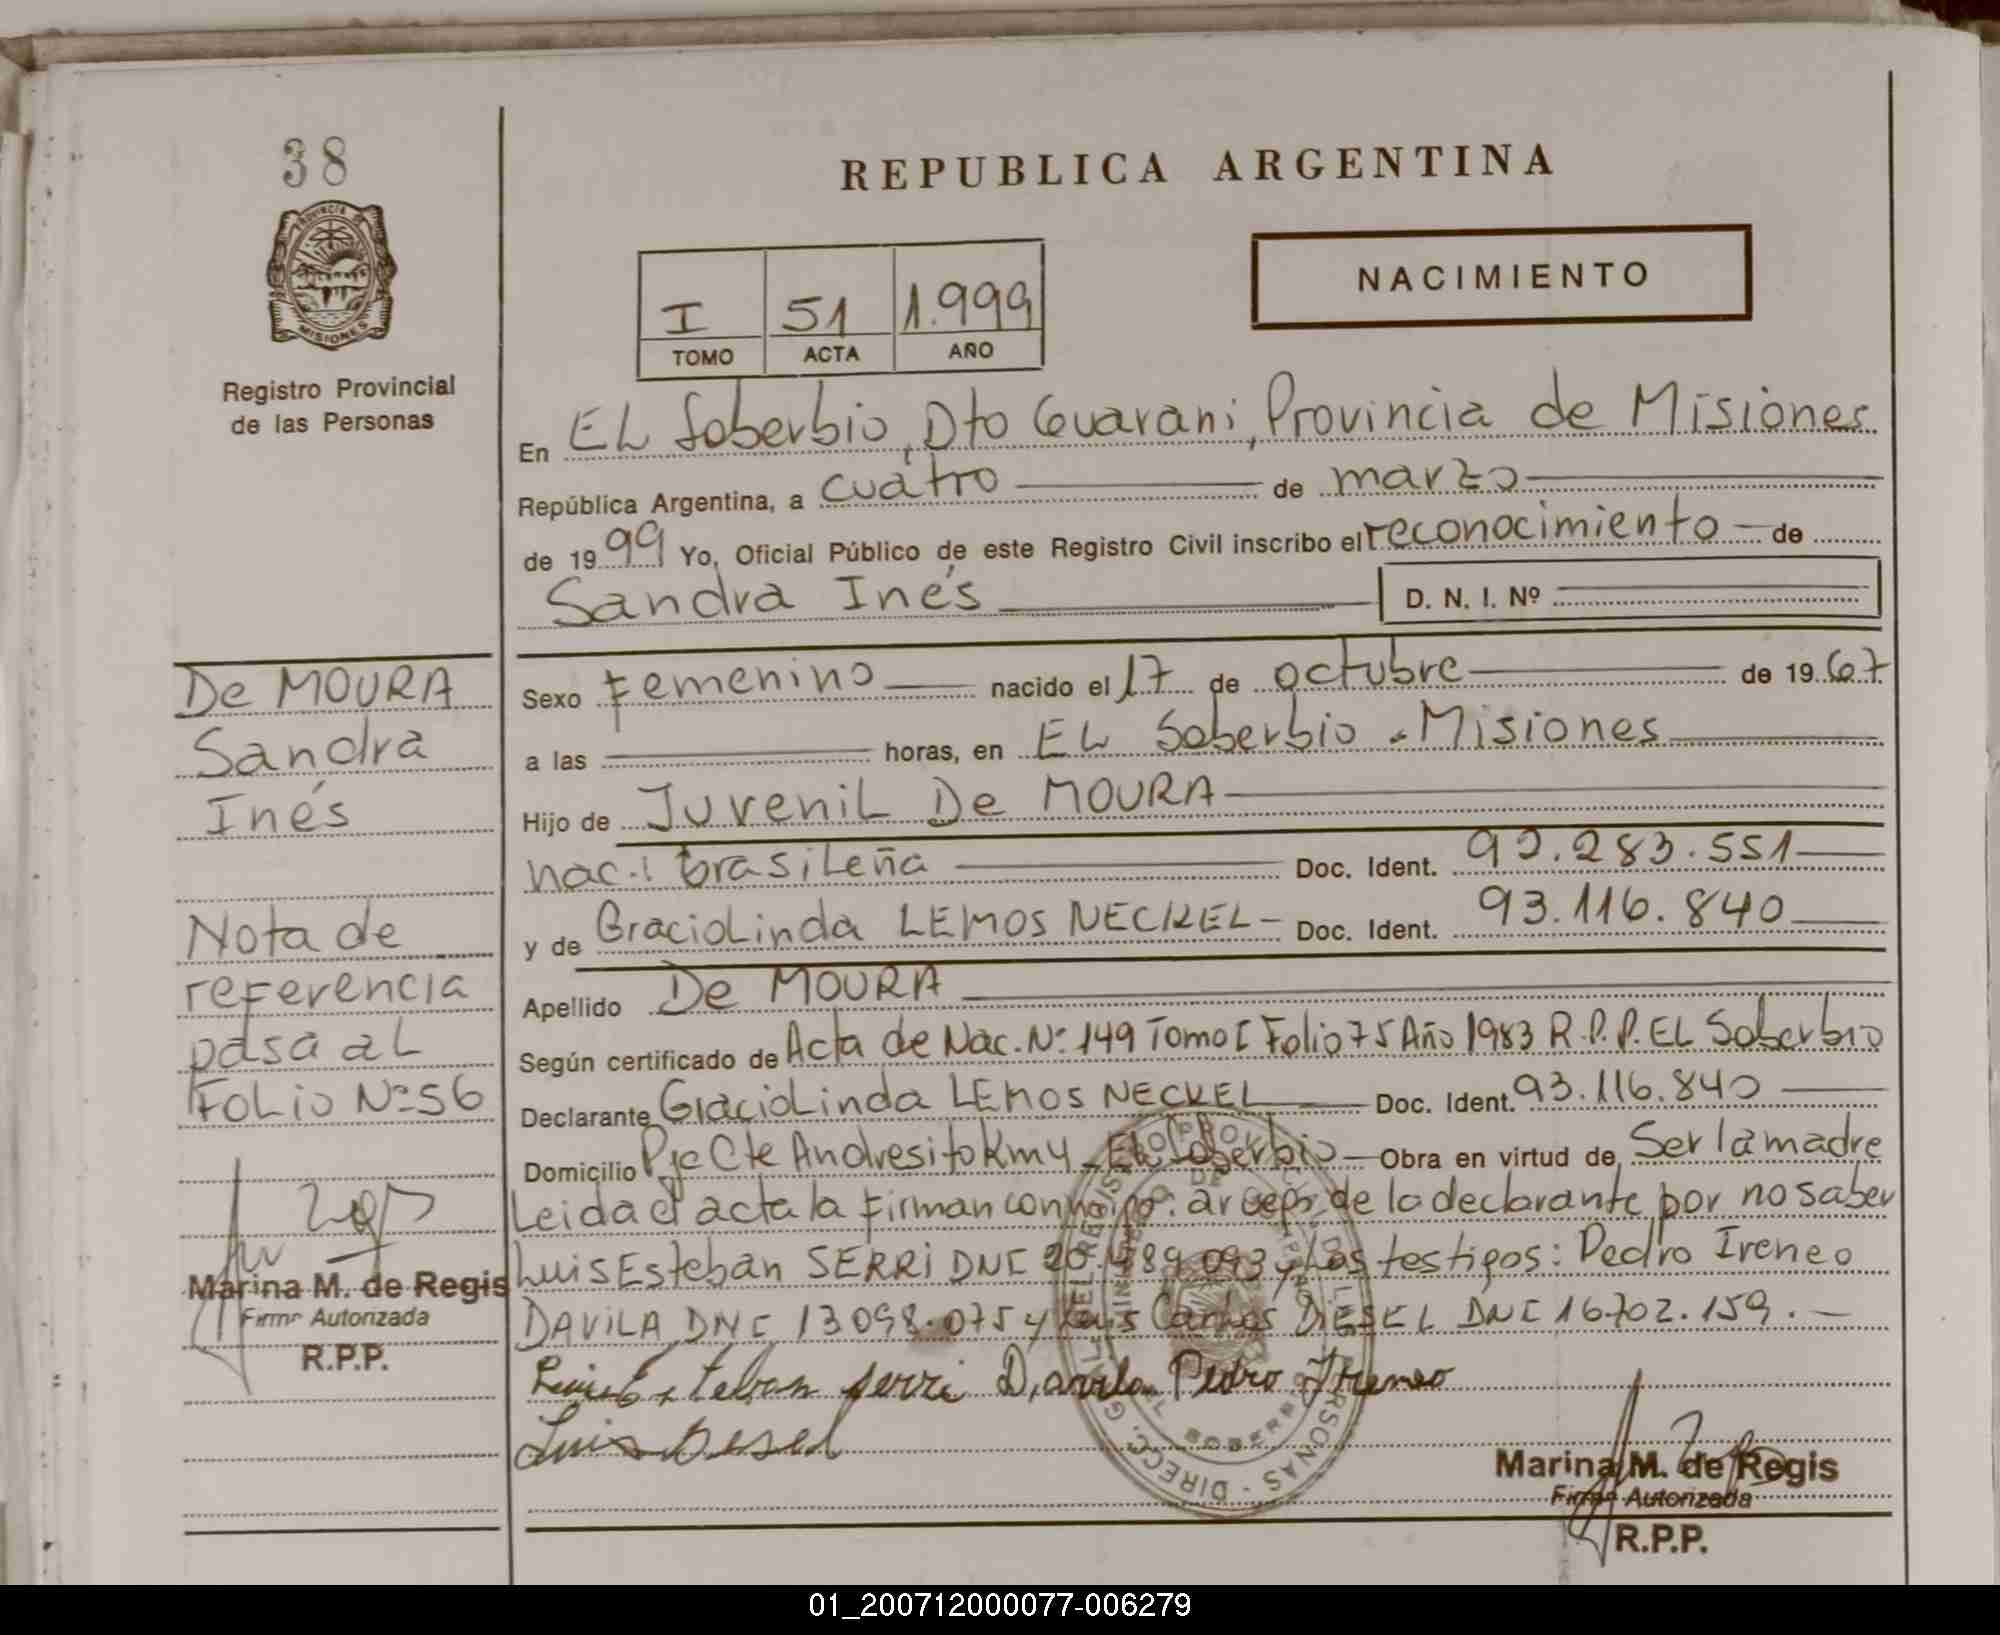 38
PROVINCIA DE
MISIONES
Registro Provincial
de las Personas
REPUBLICA ARGENTINA
NACIMIENTO
I 51 1.999
TOMO ACTA AÑO
En EL Soberbio, Dto Guarani, Provincia de Misiones
República Argentina, a cuatro de marzo
de 1999 Yo, Oficial Público de este Registro Civil inscribo el reconocimiento de
Sandra Inés D. N. I. Nº
De MOURA
Sandra
Inés
Nota de
referencia
pasa al
Folio Nº 56
Marina M. de Regis
Firma Autorizada
R.P.P.
Sexo Femenino nacido el 17 de octubre de 1967
a las horas, en EL Soberbio - Misiones
Hijo de Juvenil De MOURA
nac.: brasileña Doc. Ident. 92.283.551
y de Graciolinda LEMOS NECKEL - Doc. Ident. 93.116.840
Apellido De MOURA
Según certificado de Acta de Nac. Nº 149 Tomo I Folio 75 Año 1983 R.P.P. EL Soberbio
Declarante Graciolinda LEMOS NECKEL Doc. Ident. 93.116.840
Domicilio Pje Cte Andresito Km 4 - EL Soberbio Obra en virtud de Ser la madre
Leida el acta la firman conmigo: de la declarante por no saber
Luis Esteban SERRI DNI 20.489.093 y Los testigos: Pedro Ireneo
DAVILA DNI 13098.075 y Luis Carlos DIESEL DNI 16.702.159. -
Luis Esteban Serri Davila Pedro Ireneo
Luis Diesel
Marina M. de Regis
Firma Autorizada
R.P.P.
01_200712000077-006279